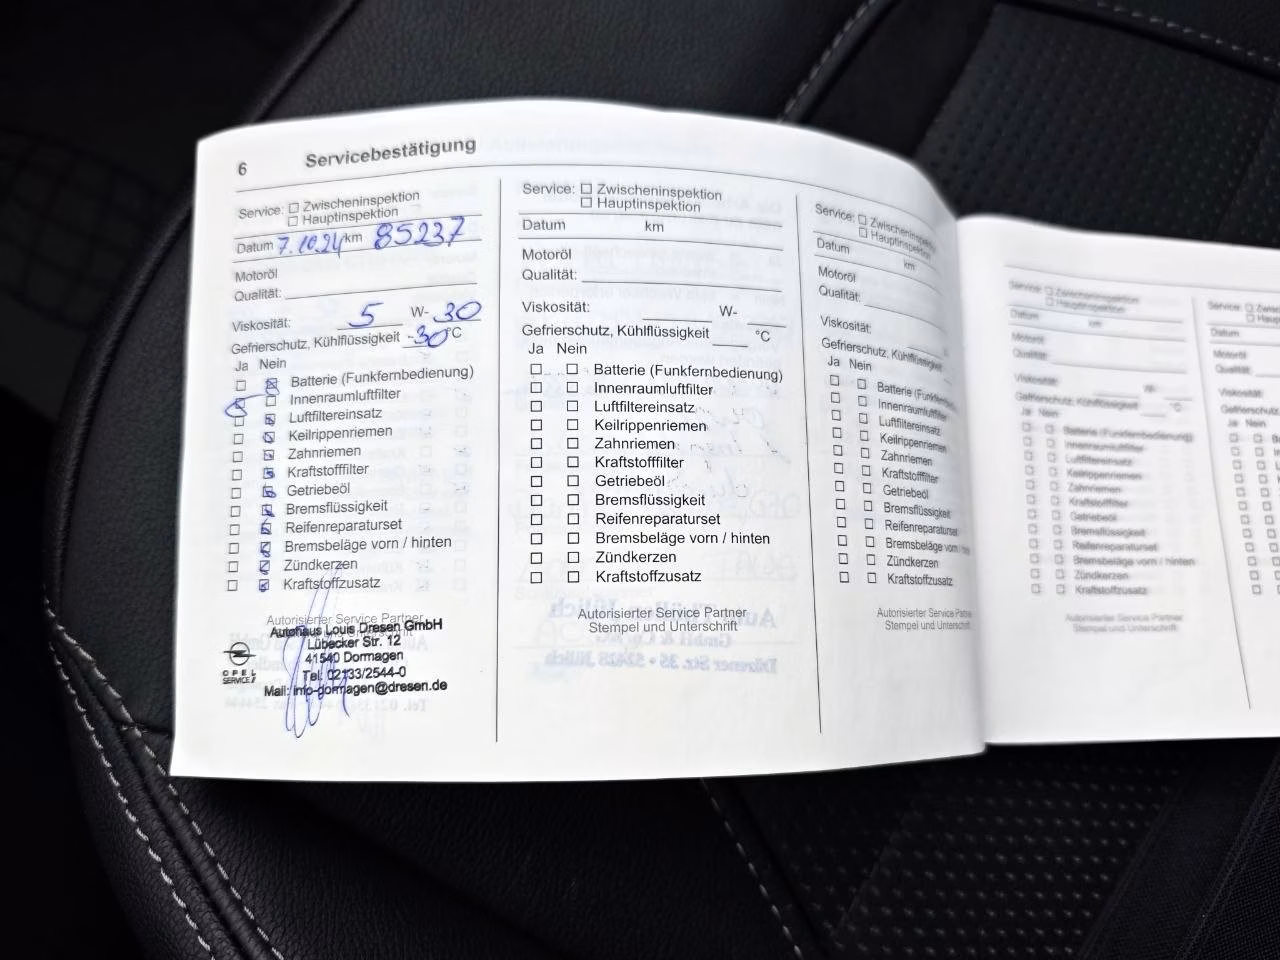 6 Servicebestätigung
Service: ☐ Zwischeninspektion
☐ Hauptinspektion
Datum 7.10.24 km 85237
Motoröl
Qualität:
Viskosität: 5 W- 30
Gefrierschutz, Kühlflüssigkeit -30 °C
Ja Nein
Batterie (Funkfernbedienung)
Innenraumluftfilter
Luftfiltereinsatz
Keilrippenriemen
Zahnriemen
Kraftstofffilter
Getriebeöl
Bremsflüssigkeit
Reifenreparaturset
Bremsbeläge vorn / hinten
Zündkerzen
Kraftstoffzusatz
Autorisierter Service Partner
Autohaus Louis Dresen GmbH
Lübecker Str. 12
41540 Dormagen
Tel. 02133/2544-0
Mail: info-dormagen@dresen.de
OPEL
SERVICE
Service: ☐ Zwischeninspektion
☐ Hauptinspektion
Datum km
Motoröl
Qualität:
Viskosität: W-
Gefrierschutz, Kühlflüssigkeit °C
Ja Nein
Batterie (Funkfernbedienung)
Innenraumluftfilter
Luftfiltereinsatz
Keilrippenriemen
Zahnriemen
Kraftstofffilter
Getriebeöl
Bremsflüssigkeit
Reifenreparaturset
Bremsbeläge vorn / hinten
Zündkerzen
Kraftstoffzusatz
Autorisierter Service Partner
Stempel und Unterschrift
Service: ☐ Zwischeninspektion
☐ Hauptinspektion
Datum km
Motoröl
Qualität:
Viskosität:
Gefrierschutz, Kühlflüssigkeit
Ja Nein
Batterie
Innenraumluftfilter
Luftfiltereinsatz
Keilrippenriemen
Zahnriemen
Kraftstofffilter
Getriebeöl
Bremsflüssigkeit
Reifenreparaturset
Bremsbeläge vorn
Zündkerzen
Kraftstoffzusatz
Autorisierter Service Partne
Stempel und Unterschrift
Service: ☐ Zwischeninspektion
☐ Hauptinspektion
Datum km
Motoröl
Qualität:
Viskosität: W-
Gefrierschutz, Kühlflüssigkeit °C
Ja Nein
Batterie (Funkfernbedienung)
Innenraumluftfilter
Luftfiltereinsatz
Keilrippenriemen
Zahnriemen
Kraftstofffilter
Getriebeöl
Bremsflüssigkeit
Reifenreparaturset
Bremsbeläge vorn / hinten
Zündkerzen
Kraftstoffzusatz
Autorisierter Service Partner
Stempel und Unterschrift
Datum
Motoröl
Qualität:
Viskosität:
Ja Nein